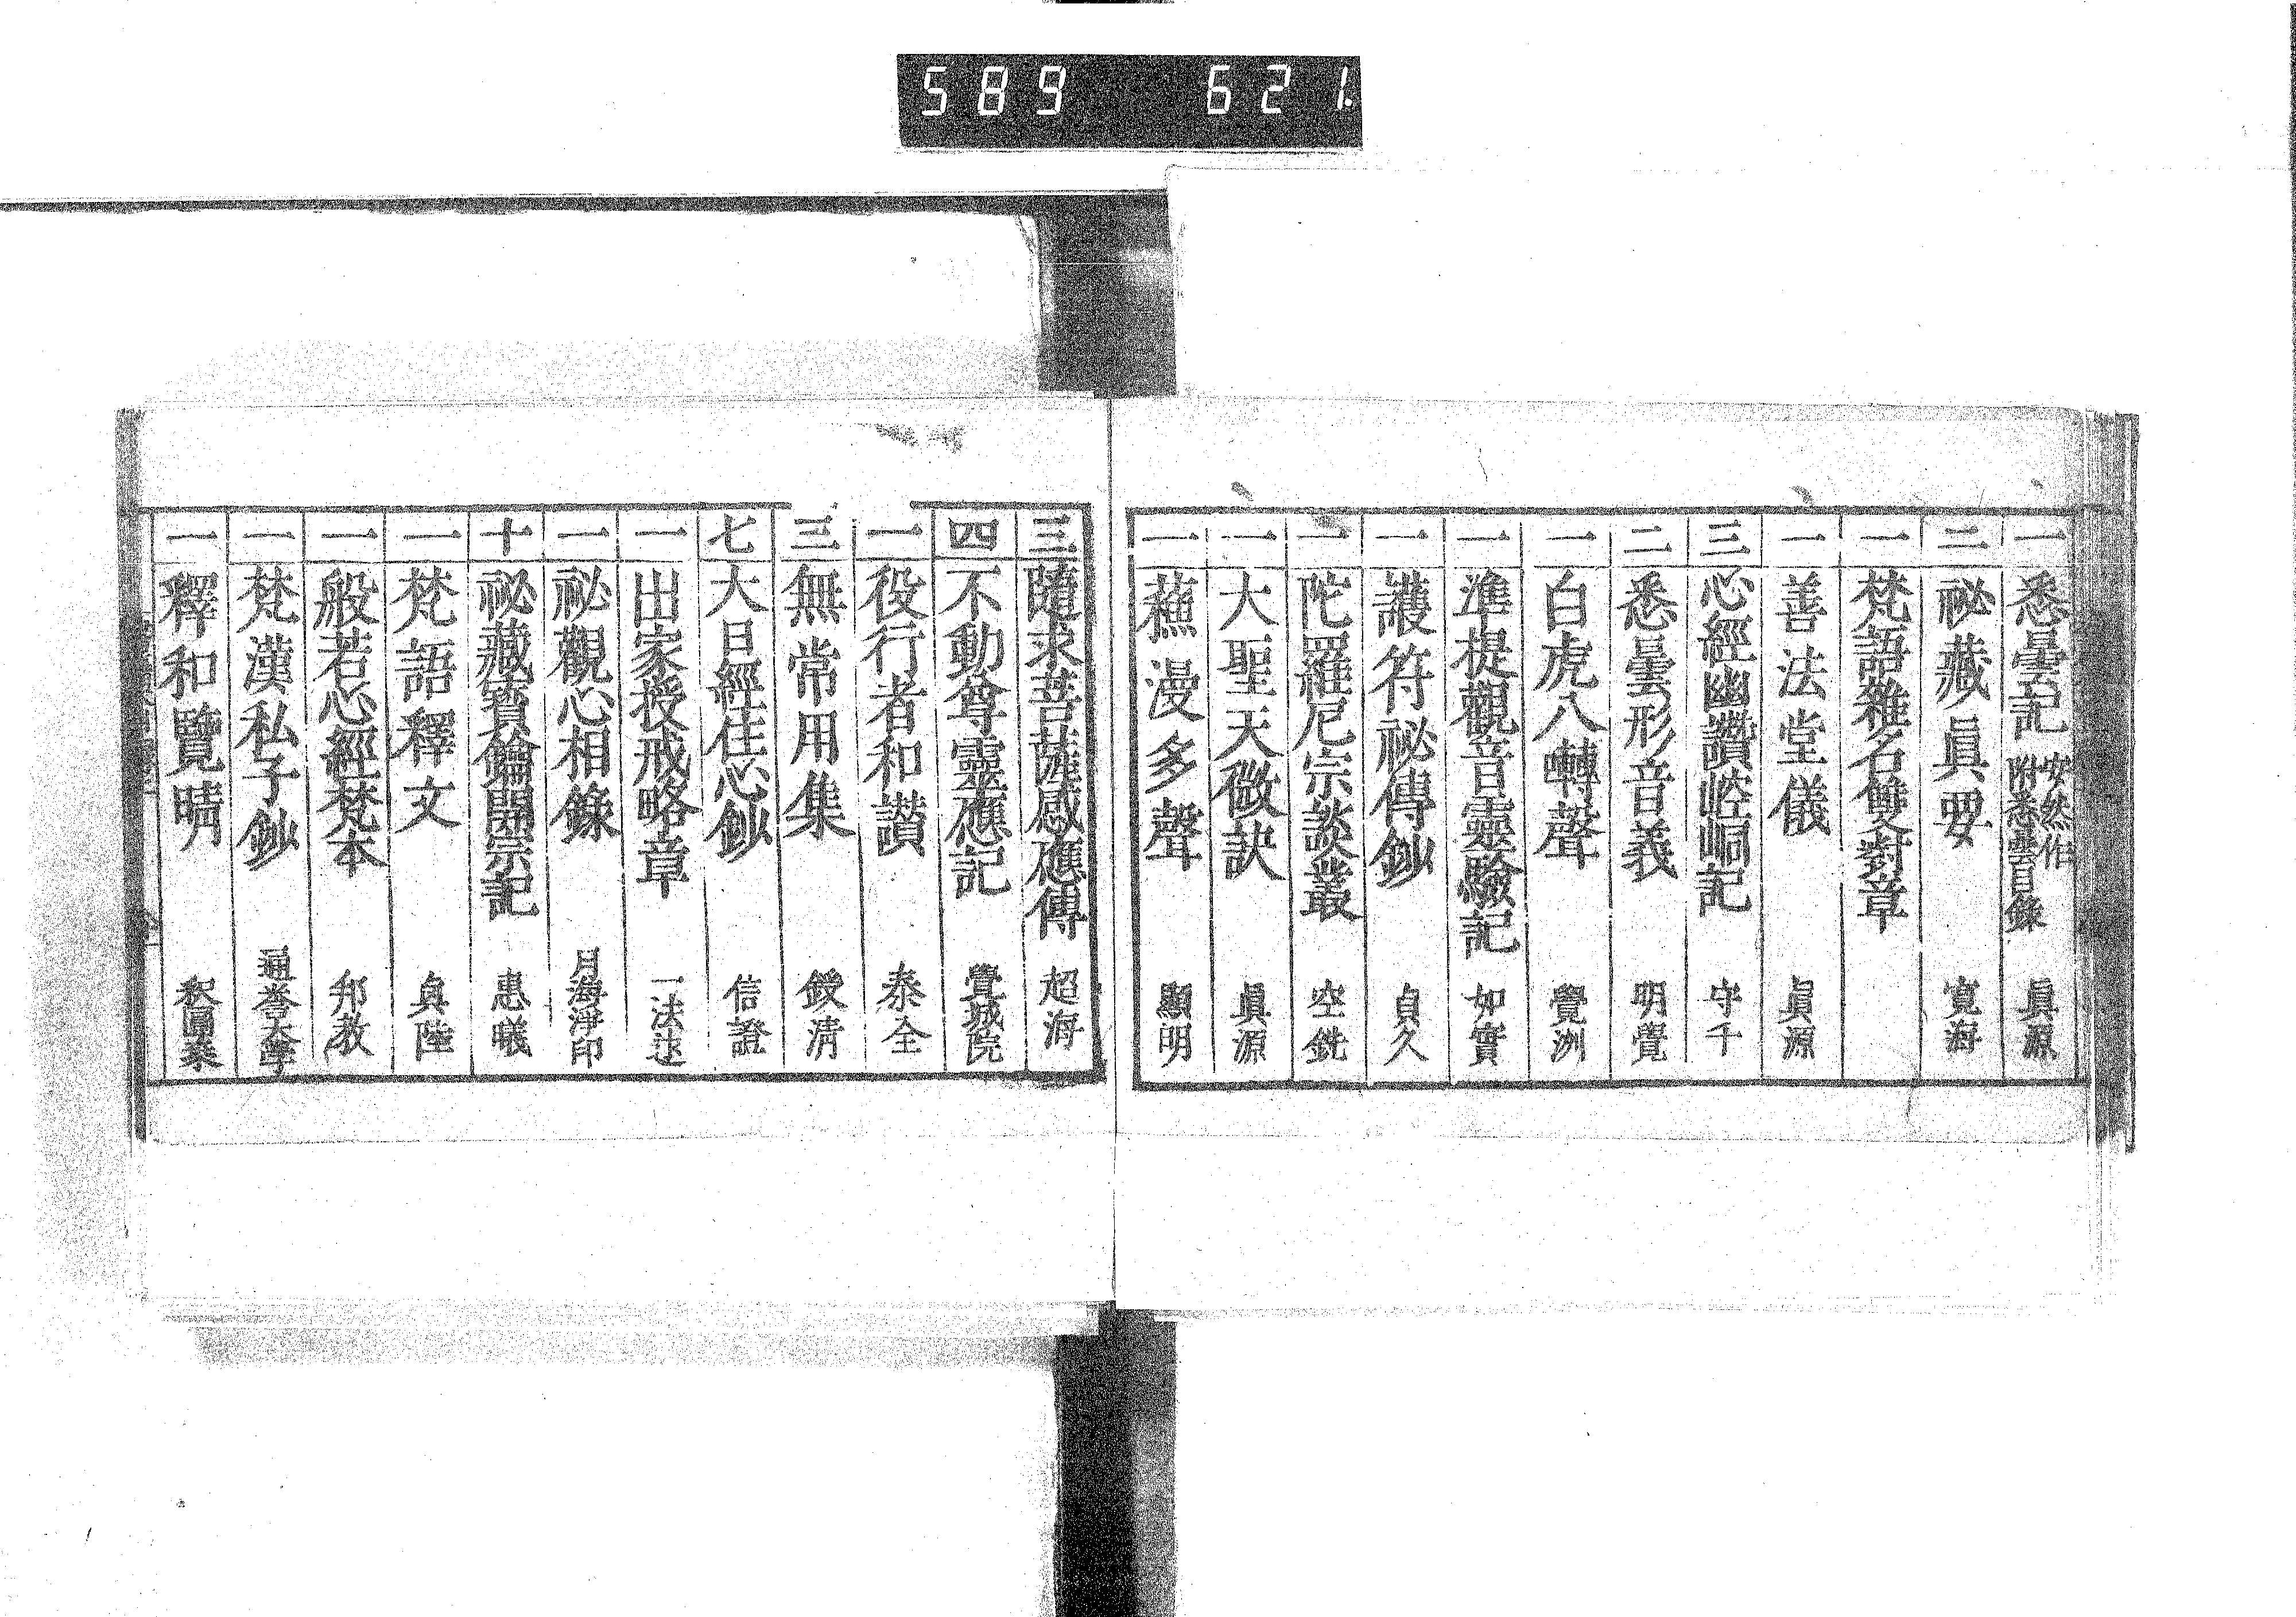 589 621.
一 悉曇記 安然作 附悉曇目錄 眞源
三 祕藏眞要 寛海
一 梵語雜名雙對章
一 善法堂儀 眞源
三 心經幽讚崆峒記 守千
二 悉曇形音義 明覺
一 白虎八轉聲 覺洲
一 準提觀音靈驗記 如實
一 護符祕傳鈔 貞久
一 陀羅尼宗談叢 空銑
一 大聖天㣲訣 眞源
一 蘓漫多聲 顯明
三 隨求菩薩感應傳 超海
四 不動尊靈應記 覺城院
一 役行者和讃 泰全
三 無常用集 鍐清
七 大日經住心鈔 信證
一 出家授戒略章 一法
一 祕觀心相錄 月海淨印
十 祕藏寶鑰開宗記 惠曦
一 梵語釋文 眞陸
一 般若心經梵本 邦教
一 梵漢私子鈔 通誉大寧
一 釋和覽晴 釈圓泰